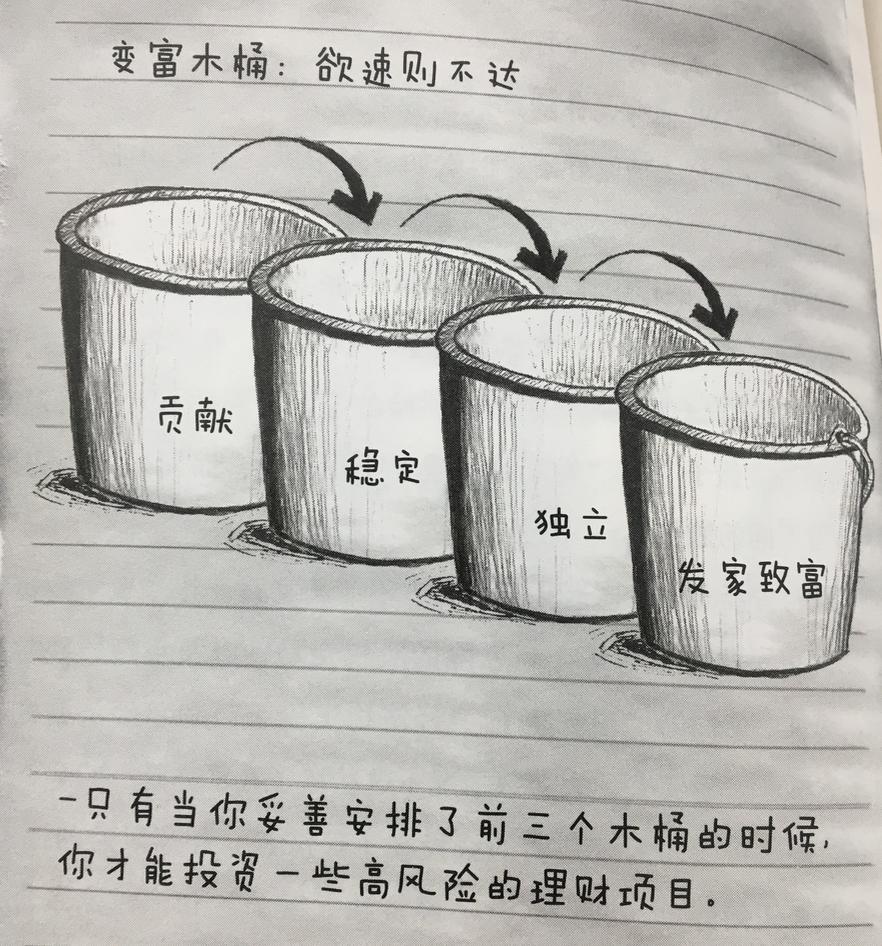 变富木桶：欲速则不达
贡献
稳定
独立
发家致富
一只有当你妥善安排了前三个木桶的时候，
你才能投资一些高风险的理财项目。